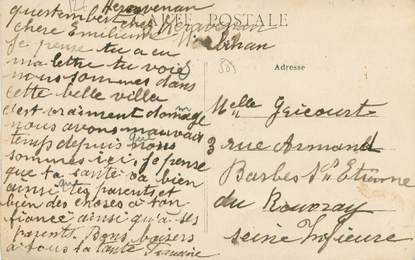 Keravenan
questembert chez Keravenan
CARTE POSTALE
chère Emilienne Morbihan
Je pense tu a eu
ma lettre tu vois
nous sommes dans
cette belle villa
c'est vraiment domage
nous avons mauvais
temps depuis nous
sommes ici, je pense
que ta santé va bien
ainsi que tes parents et
bien des choses a ton
fiancé ainsi qu'a ses
parents. Bons baisers
a tous ta tante
Adresse
Melle Gricourt
3 rue Armand
Barbes St Etienne
du Rouvray
Seine Inférieure